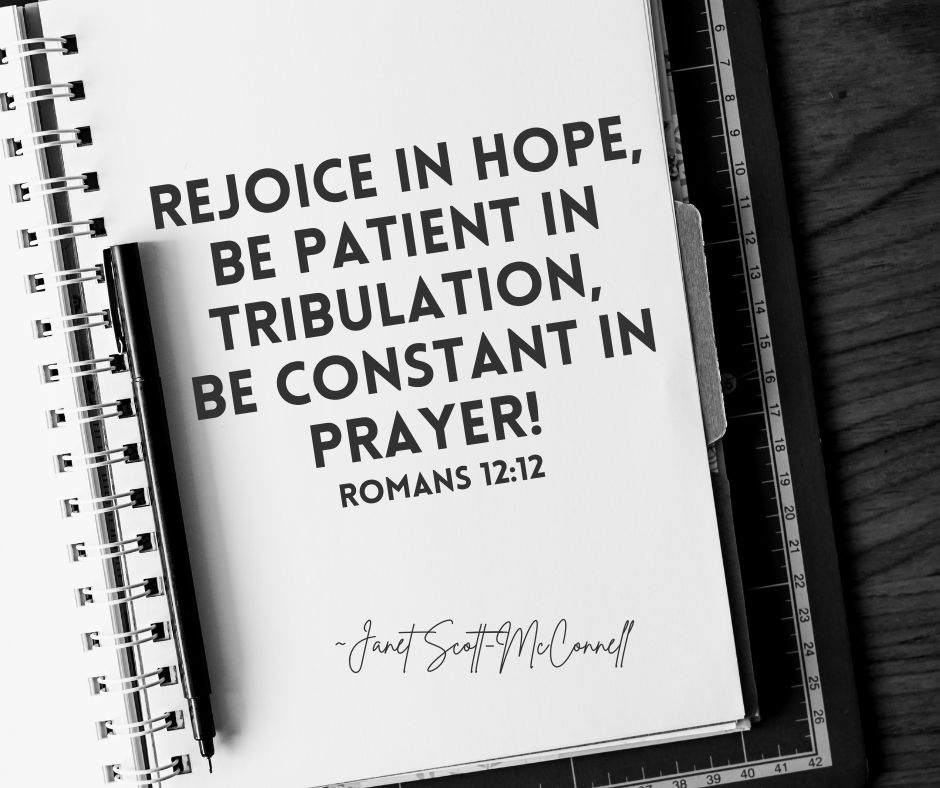 REJOICE IN HOPE,
BE PATIENT IN
TRIBULATION,
BE CONSTANT IN
PRAYER!
ROMANS 12:12
~Janet Scott-McConnell
6
7
8
9
10
11
12
13
14
15
16
17
18
19
20
21
22
23
24
25
26
36 37 38 39 40 41 42